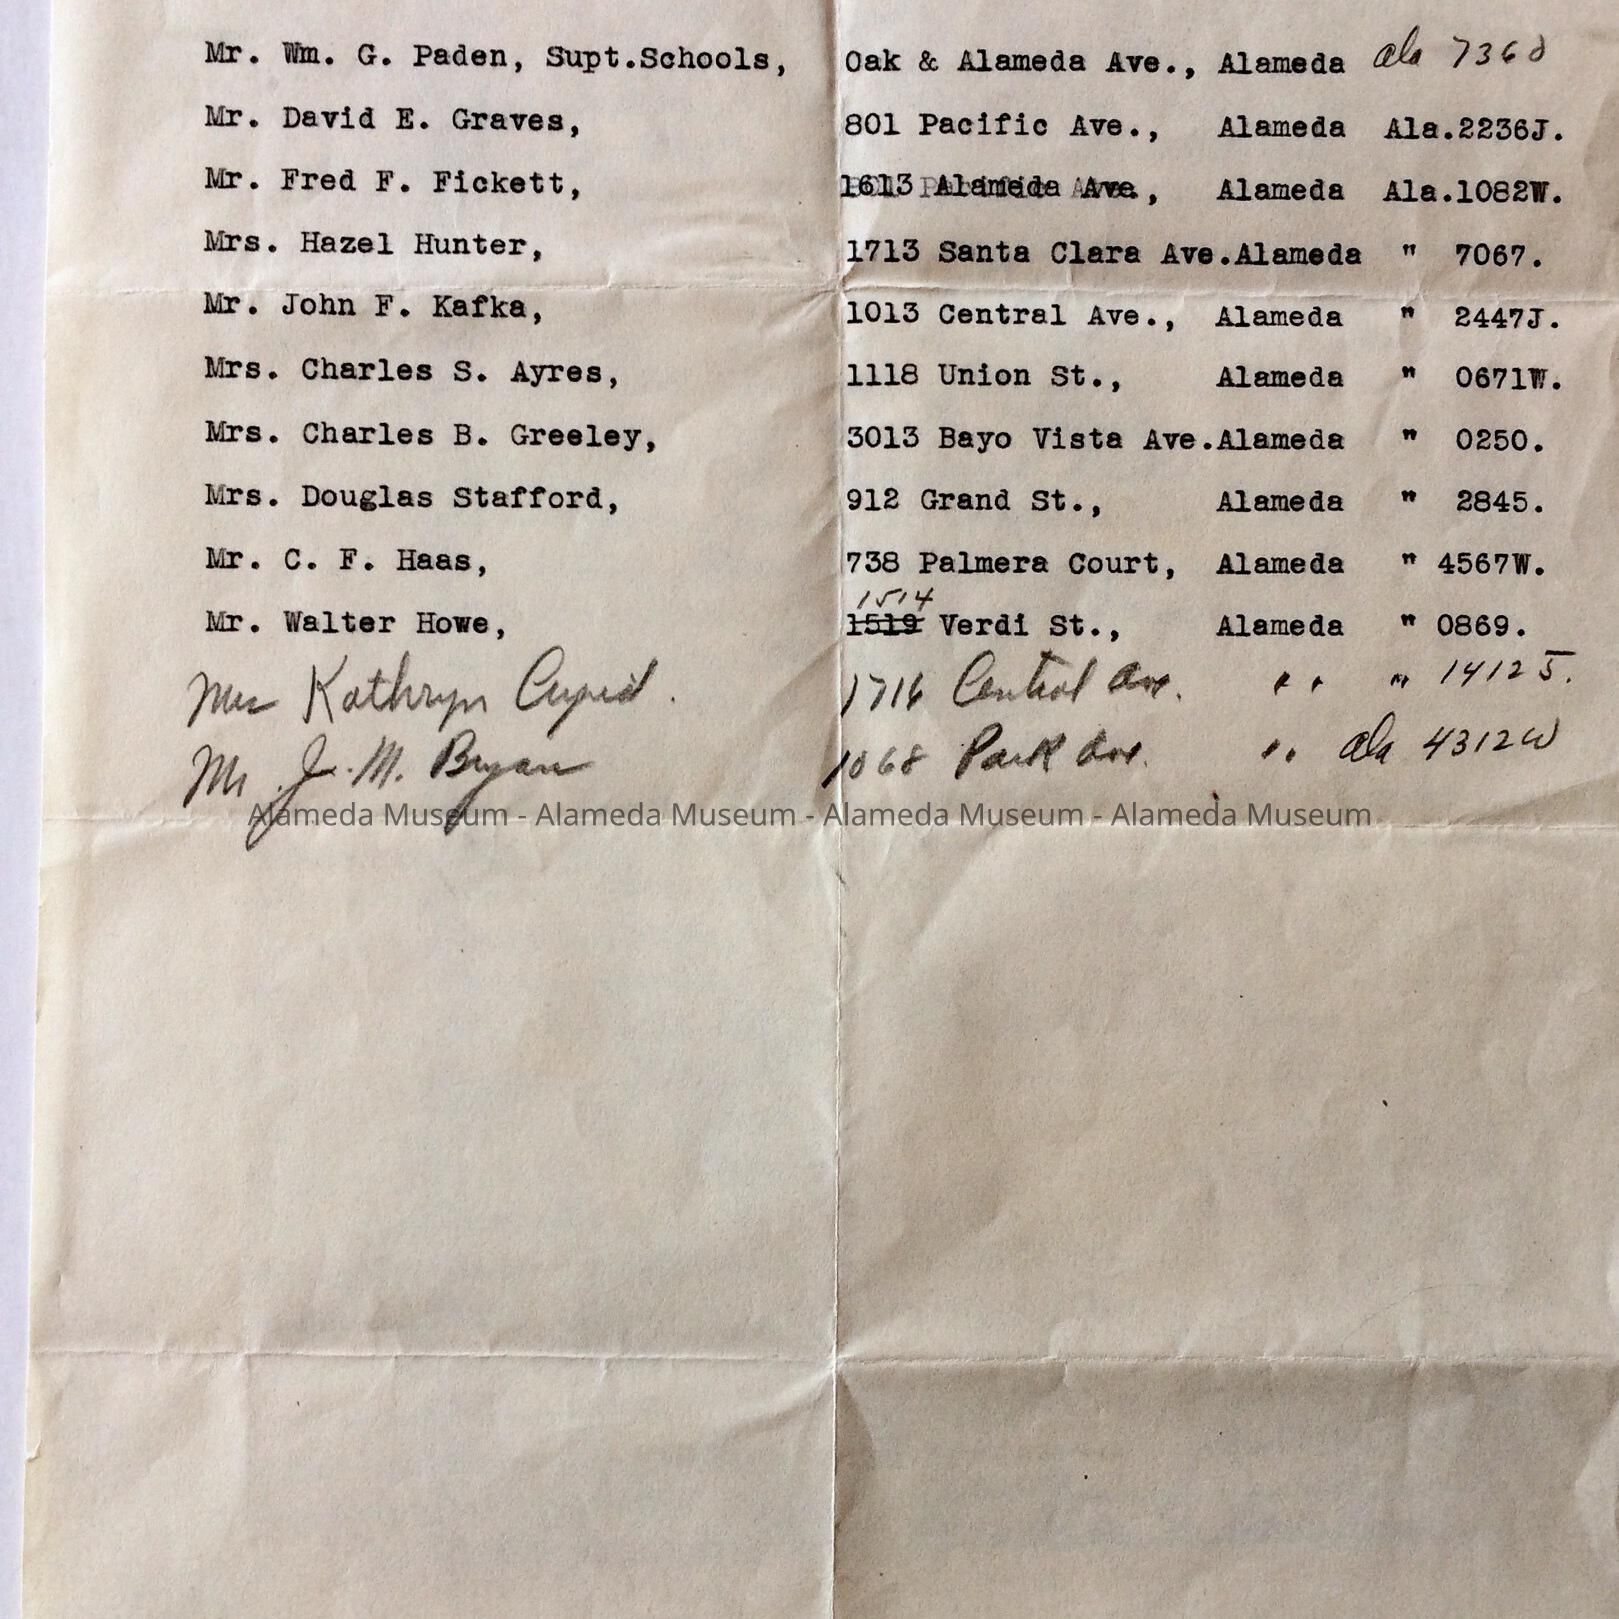 Mr. Wm. G. Paden, Supt.Schools, Oak & Alameda Ave., Alameda ala 7360
Mr. David E. Graves, 801 Pacific Ave., Alameda Ala.2236J.
Mr. Fred F. Fickett, 1613 Alameda Ave., Alameda Ala.1082W.
Mrs. Hazel Hunter, 1713 Santa Clara Ave.Alameda " 7067.
Mr. John F. Kafka, 1013 Central Ave., Alameda " 2447J.
Mrs. Charles S. Ayres, 1118 Union St., Alameda " 0671W.
Mrs. Charles B. Greeley, 3013 Bayo Vista Ave.Alameda " 0250.
Mrs. Douglas Stafford, 912 Grand St., Alameda " 2845.
Mr. C. F. Haas, 738 Palmera Court, Alameda " 4567W.
1514
Mr. Walter Howe, 1519 Verdi St., Alameda " 0869.
Kathryn 1716 Central Ave. " "
Mr. J. M. Bryan 1068 Park Ave. " ala 4312W
Alameda Museum - Alameda Museum - Alameda Museum - Alameda Museum